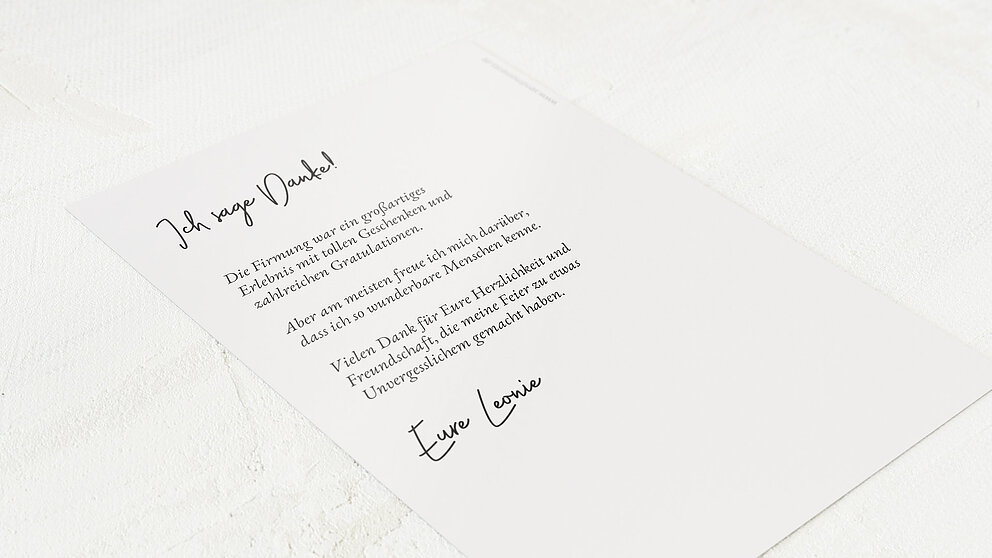 Ich sage Danke!
Die Firmung war ein großartiges
Erlebnis mit tollen Geschenken und
zahlreichen Gratulationen.
Aber am meisten freue ich mich darüber,
dass ich so wunderbare Menschen kenne.
Vielen Dank für Eure Herzlichkeit und
Freundschaft, die meine Feier zu etwas
Unvergesslichem gemacht haben.
Eure Leonie